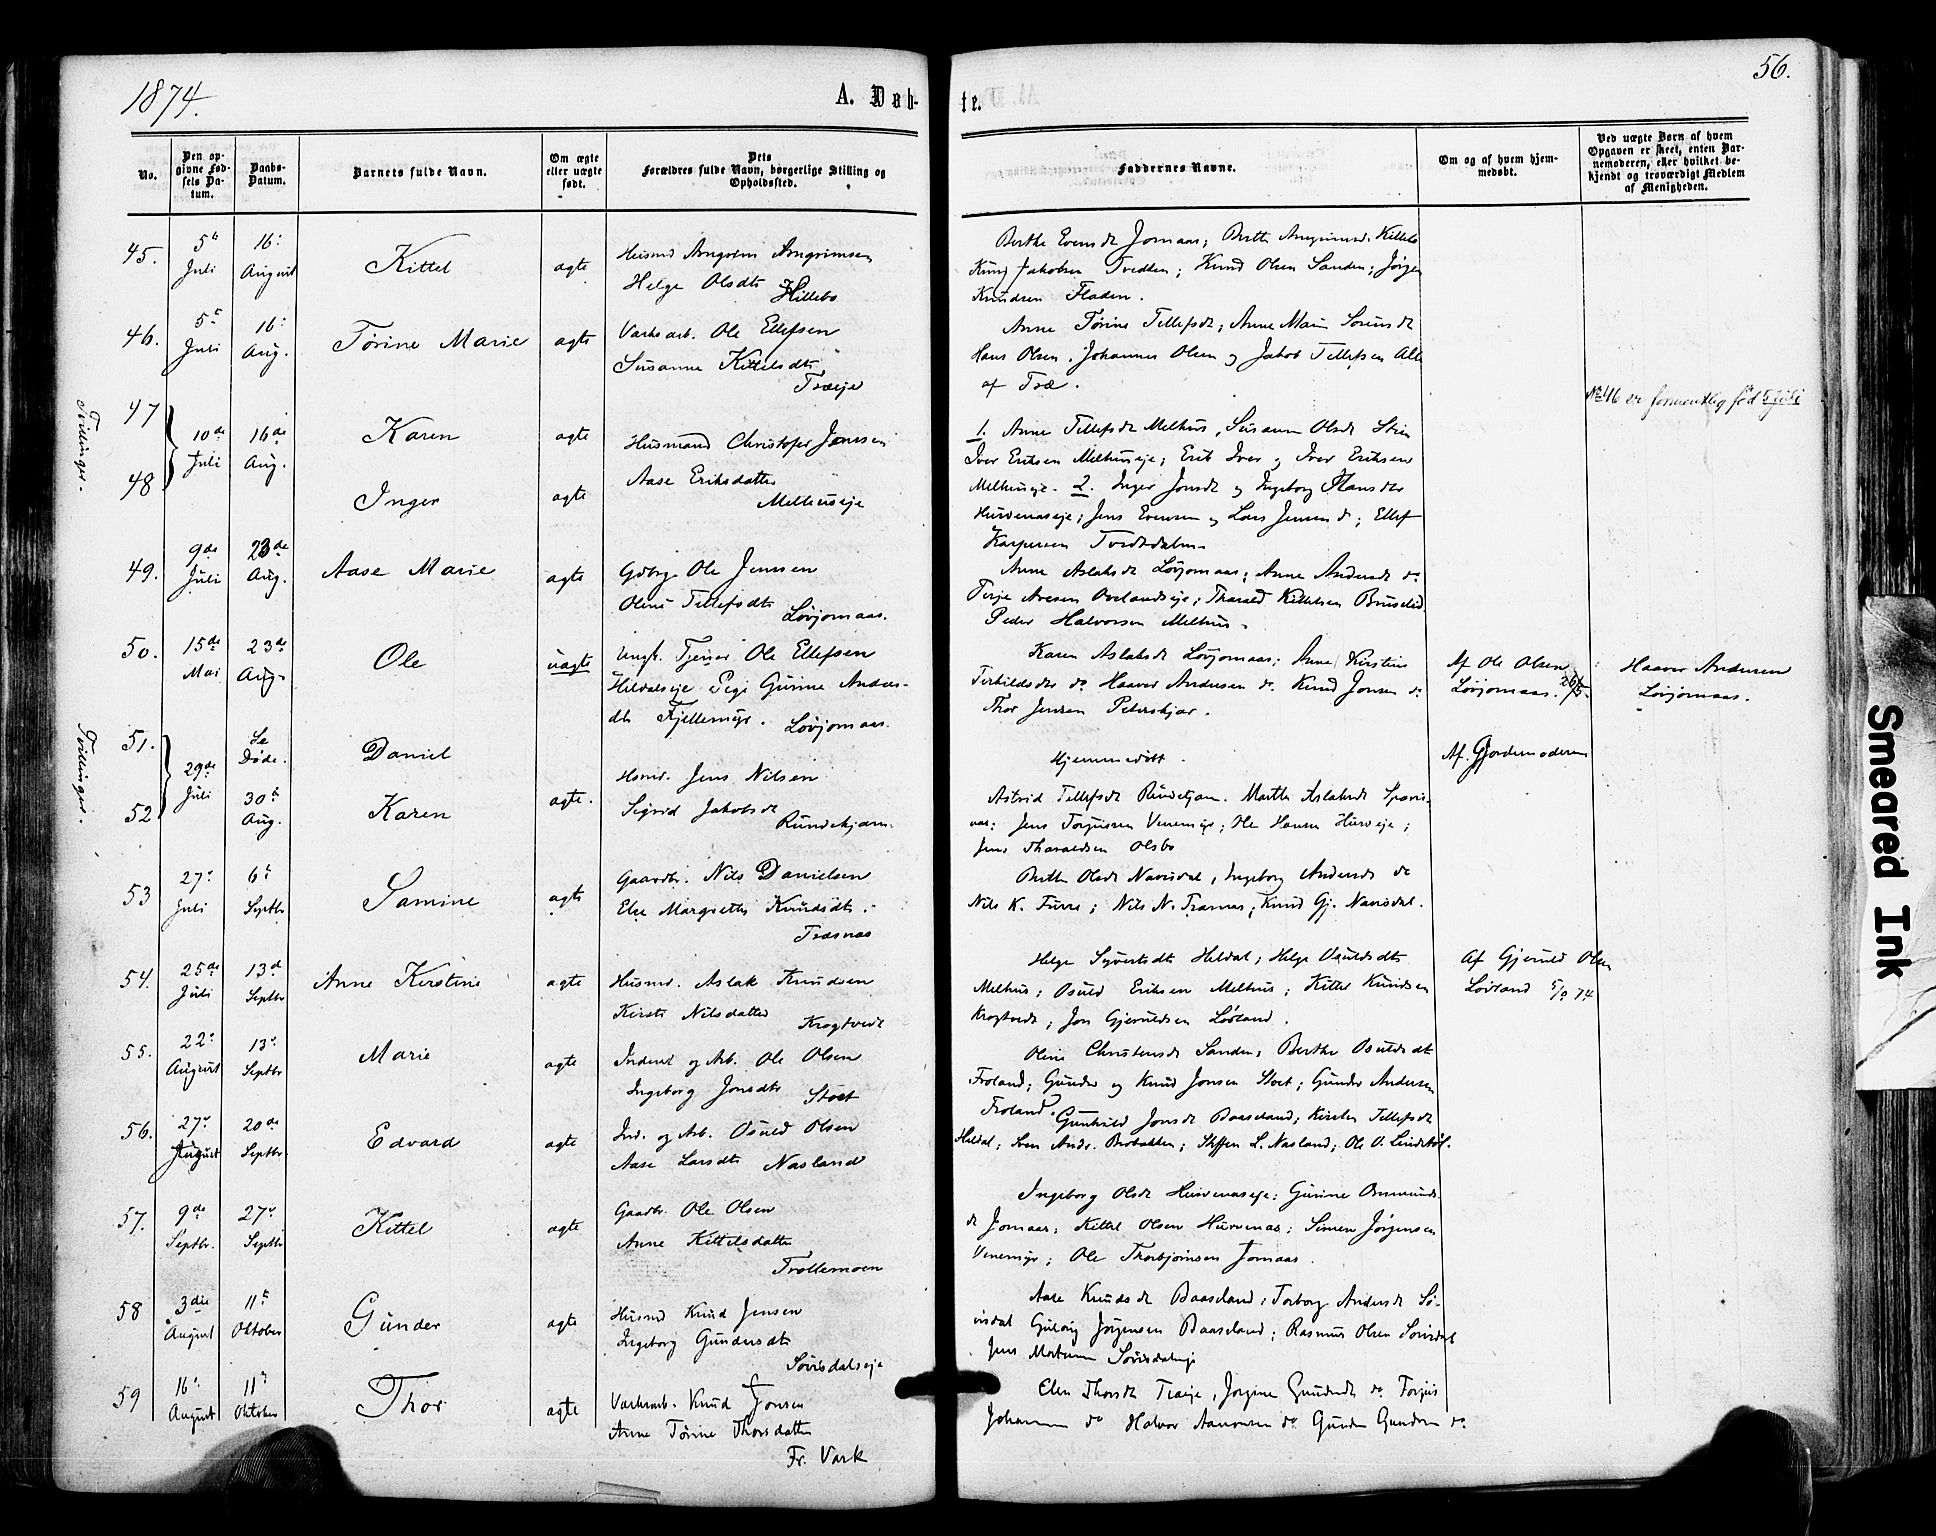 1874.
A. Døb-
te.
56.
No.
Den op-
givne Fød-
sels Da-
tum.
Daabs-
Datum.
Barnets fulde Navn.
Om ægte
eller uægte
født.
Dets
Forældres fulde Navn, borgerlige Stilling og
Opholdssted.
Faddernes Navne.
Om og af hvem hjem-
medøbt.
Ved uægte Børn af hvem
Opgaven er skeet, enten Bar-
nemoderen, eller hvilket be-
kjendt og troværdigt Medlem
af Menigheden.
45.
5te Juli
16 August
Kittel
ægte
Husmd Arngrim Arngrimsen
Helge Olsdtr
Hillebo
Berthe Evensdt Jomaas; Berthe Arngrimsd. Hillebo
Knud Jakobsen Tvedten; Knud Olsen Sanden; Jørgen
Knudsen Fladen.
46.
5te Juli
16 Aug.
Tørine Marie
ægte
Værksarb. Ole Ellefsen
Susanne Kittelsdtr
Træeje
Anne Tørine Tellefsdt; Anne Marie Sørensdt
Hans Olsen, Johannes Olsen og Jakob Tellefsen Alle
af Træ.
No 46 er formentlig fød 5 Juli
Tvillinger.
47
48
10de Juli
16de Aug.
Karen
ægte
Inger
ægte
Husmand Christofer Jonsen
Aase Eriksdatter
Melhuseje
1. Anne Tellefsdt Melhus, Susanne Olsdt
Iver Eriksen Melhuseje; Erik Iver og Iver Eriksen
Melhuseje. 2. Inger Jonsdt og Ingeborg Hansdtr
Hurvenæseje; Jens Evensen og Lars Jensen do; Ellef
Kaspersen Tvedtdalen.
49.
9de Juli
23de Aug.
Aase Marie
ægte
Gdbrgr Ole Jensen
Oline Tellefsdtr
Løvjomaas.
Anne Aslaksdt Løvjomaas; Anne Andersdt do
Terje Aresen Ovelandseje; Tharald Kittelsen Bruselid
Peder Halvorsen Melhus.
50.
15de Mai
23de Aug.
Ole
uægte
Ungk. Tjener Ole Ellefsen
Hildalseje Pige Gurine Anders-
dtr Fjellemyr. Løvjomaas.
Karen Aslaksdt Løvjomaas; Anne Kirstine
Terkildsdtr do Haaver Andersen do. Knud Jonsen do
Thor Jensen Peterskjær.
Af Ole Olsen
Løvjomaas. 26/5.
Haaver Andersen
Løvjomaas.
Tvillinger.
51.
52
29de Juli
Se Døde.
30te Aug.
Daniel
Karen
ægte.
Hsmd. Jens Nilsen
Sigrid Jakobsdt
Rundekjærn.
Hjemmedøbt.
Af Gjordemoderen
Astrid Tellefsdt Rundetjærn. Marthe Aslaksdt Sparis-
vas; Jens Torjussen Venemyr; Ole Hansen Hurveje;
Jens Tharaldsen Olsbo
53
27 Juli
6te Septbr
Samine
ægte
Gaardbr. Nils Danielsen
Else Margrethe Knudsdtr
Træsnæs
Berthe Olsdt Navisdal, Ingeborg Andersdt do
Nils K. Furre; Nils N. Træsnæs; Knud Gj. Navisdal.
54.
25de Juli
13de Septbr
Anne Kirstine
ægte
Husmd. Aslak Knudsen
Kirsti Nilsdatter
Krogtvedt
Helge Syvertsdt Heldal; Helge Osuldsdtr
Melhus; Osuld Eriksen Melhus; Kittel Knudsen
Krogtvedt; Jon Gjeruldsen Løvland.
Af Gjeruld Olsen
Løvland 5/9 74
55.
22 August
13 Septbr
Marie
ægte
Inderst og Arb. Ole Olsen
Ingeborg Jonsdtr
Stoet
Oline Christensdt Sanden; Berthe Osuldsdt
Froland; Gunder og Knud Jonsen Stoet; Gunder Andersen
Froland.
56.
27 August
20de Septbr
Edvard
ægte
Ind. og Arb. Osuld Olsen
Aase Larsdtr Næsland
Gunhild Jonsdt Baaseland; Kirsten Tellefsdt
Heldal; Sven Andr. Brobakken; Steffen L. Næsland; Ole O. Lindtvet.
57.
9de Septbr.
27 Septbr
Kittel
ægte
Gaardbr. Ole Olsen
Anne Kittelsdatter
Trollemoen
Ingeborg Olsdt Hurvenæseje; Gurine Osmunds-
dt Jomaas; Kittel Olsen Hurvenæs; Simen Jørgensen
Venemyr; Ole Thorbjørnsen Jomaas.
58
3die August
11te Oktober
Gunder
ægte
Husmd Knud Jensen
Ingeborg Gundersdtr
Sørisdalseje
Aase Knudsdt Baaseland, Torborg Andersdt Sø-
risdal Gulovig Jørgensen Baaseland; Rasmus Olsen Sørisdal
Jens Mortensen Sørisdalseje
59
16 August
11 Oktober
Thor
ægte
Værksarb. Knud Jonsen
Anne Tørine Thorsdatter
Fr. Værk
Elen Thorsdt Træeje, Jorgine Gundersdt do Torjus
Johannesen do Halvor Aanonsen do Gunder Gundersen do.
Smeared Ink